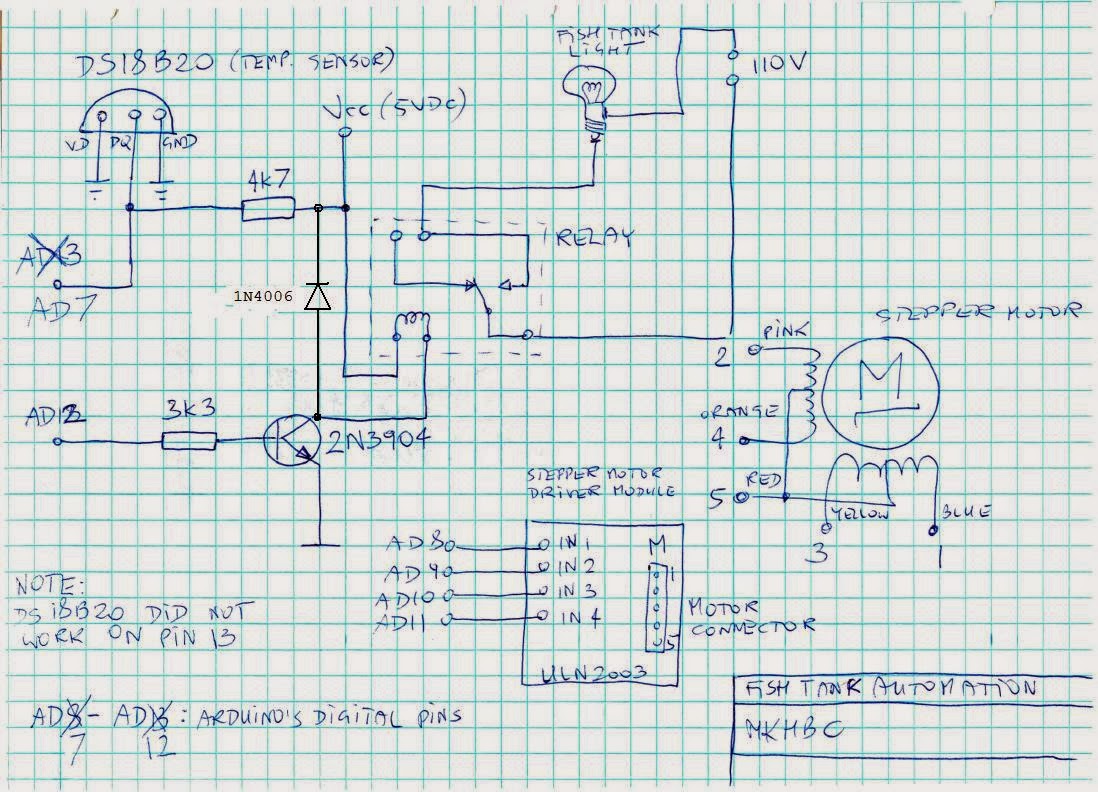 FISH TANK
LIGHT
110V
DS18B20 (TEMP. SENSOR)
VCC (5VDC)
VD DQ GND
4K7
RELAY
AD13
AD7
1N4006
STEPPER MOTOR
PINK
2
M
ORANGE
4
RED
5
YELLOW
3
BLUE
1
AD12
3K3
2N3904
STEPPER MOTOR
DRIVER MODULE
AD8 IN1
AD9 IN2
AD10 IN3
AD11 IN4
M
1
5
MOTOR
CONNECTOR
ULN2003
NOTE:
DS18B20 DID NOT
WORK ON PIN 13
AD8 - AD13 : ARDUINO'S DIGITAL PINS
7 12
FISH TANK AUTOMATION
MKHBC